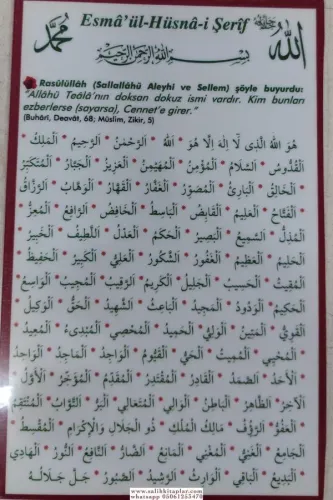 Esmâ'ül-Hüsnâ-i Şerîf
محمد
الله
بسم الله الرحمن الرحيم
Rasûlüllâh (Sallallâhü Aleyhi ve Sellem) şöyle buyurdu:
"Allâhü Teâlâ'nın doksan dokuz ismi vardır. Kim bunları
ezberlerse (sayarsa), Cennet'e girer."
(Buhârî, Deavât, 68; Müslim, Zikir, 5)
هُوَ اللهُ الَّذِى لَا اِلٰهَ اِلَّا هُوَ * اَللهُ * اَلرَّحْمٰنُ * اَلرَّحِيمُ * اَلْمَلِكُ *
اَلْقُدُّوسُ * اَلسَّلَامُ * اَلْمُؤْمِنُ * اَلْمُهَيْمِنُ * اَلْعَزِيزُ * اَلْجَبَّارُ * اَلْمُتَكَبِّرُ
* اَلْخَالِقُ * اَلْبَارِئُ * اَلْمُصَوِّرُ * اَلْغَفَّارُ * اَلْقَهَّارُ * اَلْوَهَّابُ * اَلرَّزَّاقُ
* اَلْفَتَّاحُ * اَلْعَلِيمُ * اَلْقَابِضُ * اَلْبَاسِطُ * اَلْخَافِضُ * اَلرَّافِعُ * اَلْمُعِزُّ
اَلْمُذِلُّ * اَلسَّمِيعُ * اَلْبَصِيرُ * اَلْحَكَمُ * اَلْعَدْلُ * اَللَّطِيفُ * اَلْخَبِيرُ *
اَلْحَلِيمُ * اَلْعَظِيمُ * اَلْغَفُورُ * اَلشَّكُورُ * اَلْعَلِيُّ * اَلْكَبِيرُ * اَلْحَفِيظُ *
اَلْمُقِيتُ * اَلْحَسِيبُ * اَلْجَلِيلُ * اَلْكَرِيمُ * اَلرَّقِيبُ * اَلْمُجِيبُ * اَلْوَاسِعُ *
اَلْحَكِيمُ * اَلْوَدُودُ * اَلْمَجِيدُ * اَلْبَاعِثُ * اَلشَّهِيدُ * اَلْحَقُّ * اَلْوَكِيلُ *
اَلْقَوِيُّ * اَلْمَتِينُ * اَلْوَلِيُّ * اَلْحَمِيدُ * اَلْمُحْصِي * اَلْمُبْدِىءُ * اَلْمُعِيدُ
* اَلْمُحْيِي * اَلْمُمِيتُ * اَلْحَيُّ * اَلْقَيُّومُ * اَلْوَاجِدُ * اَلْمَاجِدُ * اَلْوَاحِدُ
* اَلْاَحَدُ * اَلصَّمَدُ * اَلْقَادِرُ * اَلْمُقْتَدِرُ * اَلْمُقَدِّمُ * اَلْمُؤَخِّرُ * اَلْاَوَّلُ *
اَلْاٰخِرُ * اَلظَّاهِرُ * اَلْبَاطِنُ * اَلْوَالِي * اَلْمُتَعَالِي * اَلْبَرُّ * اَلتَّوَّابُ * اَلْمُنْتَقِمُ
* اَلْعَفُوُّ * اَلرَّؤُفُ * مَالِكُ الْمُلْكِ * ذُو الْجَلَالِ وَالْاِكْرَامِ * اَلْمُقْسِطُ *
اَلْجَامِعُ * اَلْغَنِيُّ * اَلْمُغْنِي * اَلْمَانِعُ * اَلضَّارُّ * اَلنَّافِعُ * اَلنُّورُ * اَلْهَادِي
* اَلْبَدِيعُ * اَلْبَاقِي * اَلْوَارِثُ * اَلرَّشِيدُ * اَلصَّبُورُ * جَلَّ جَلَالُهُ *
www.salihkitaplar.com
whatsapp 05061255470